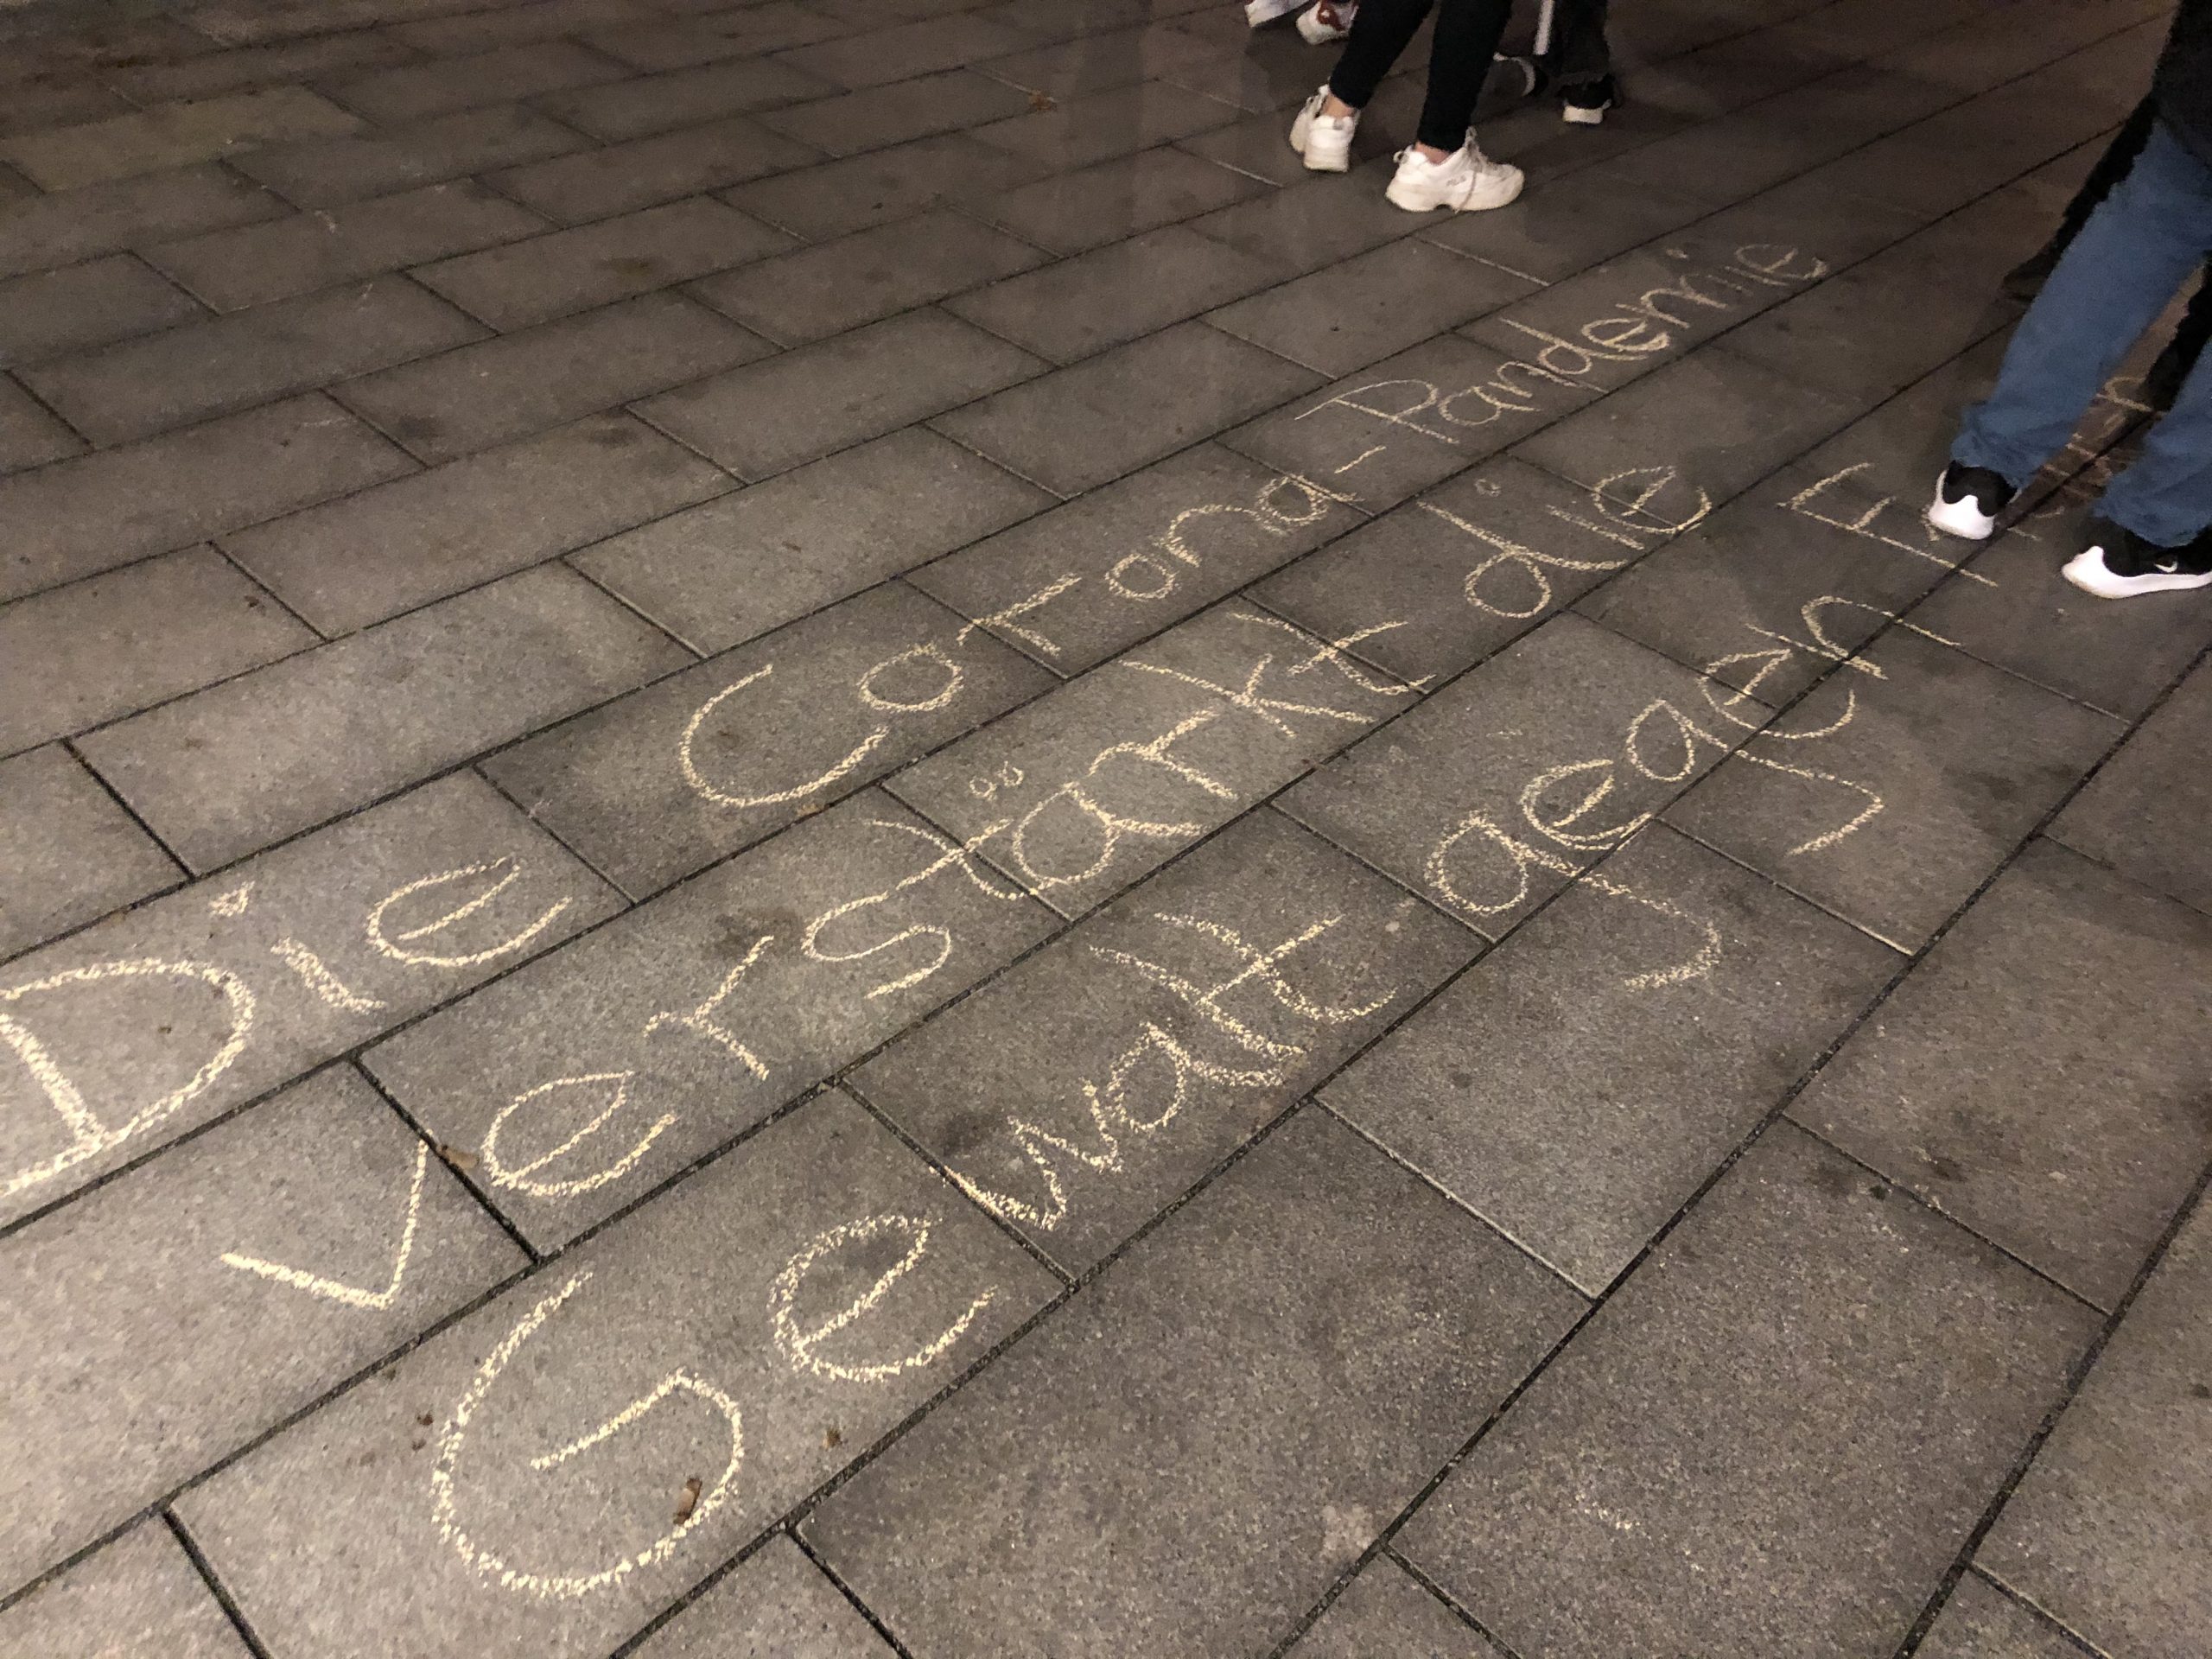 Die Corona-Pandemie
verstärkt die
Gewalt gegen